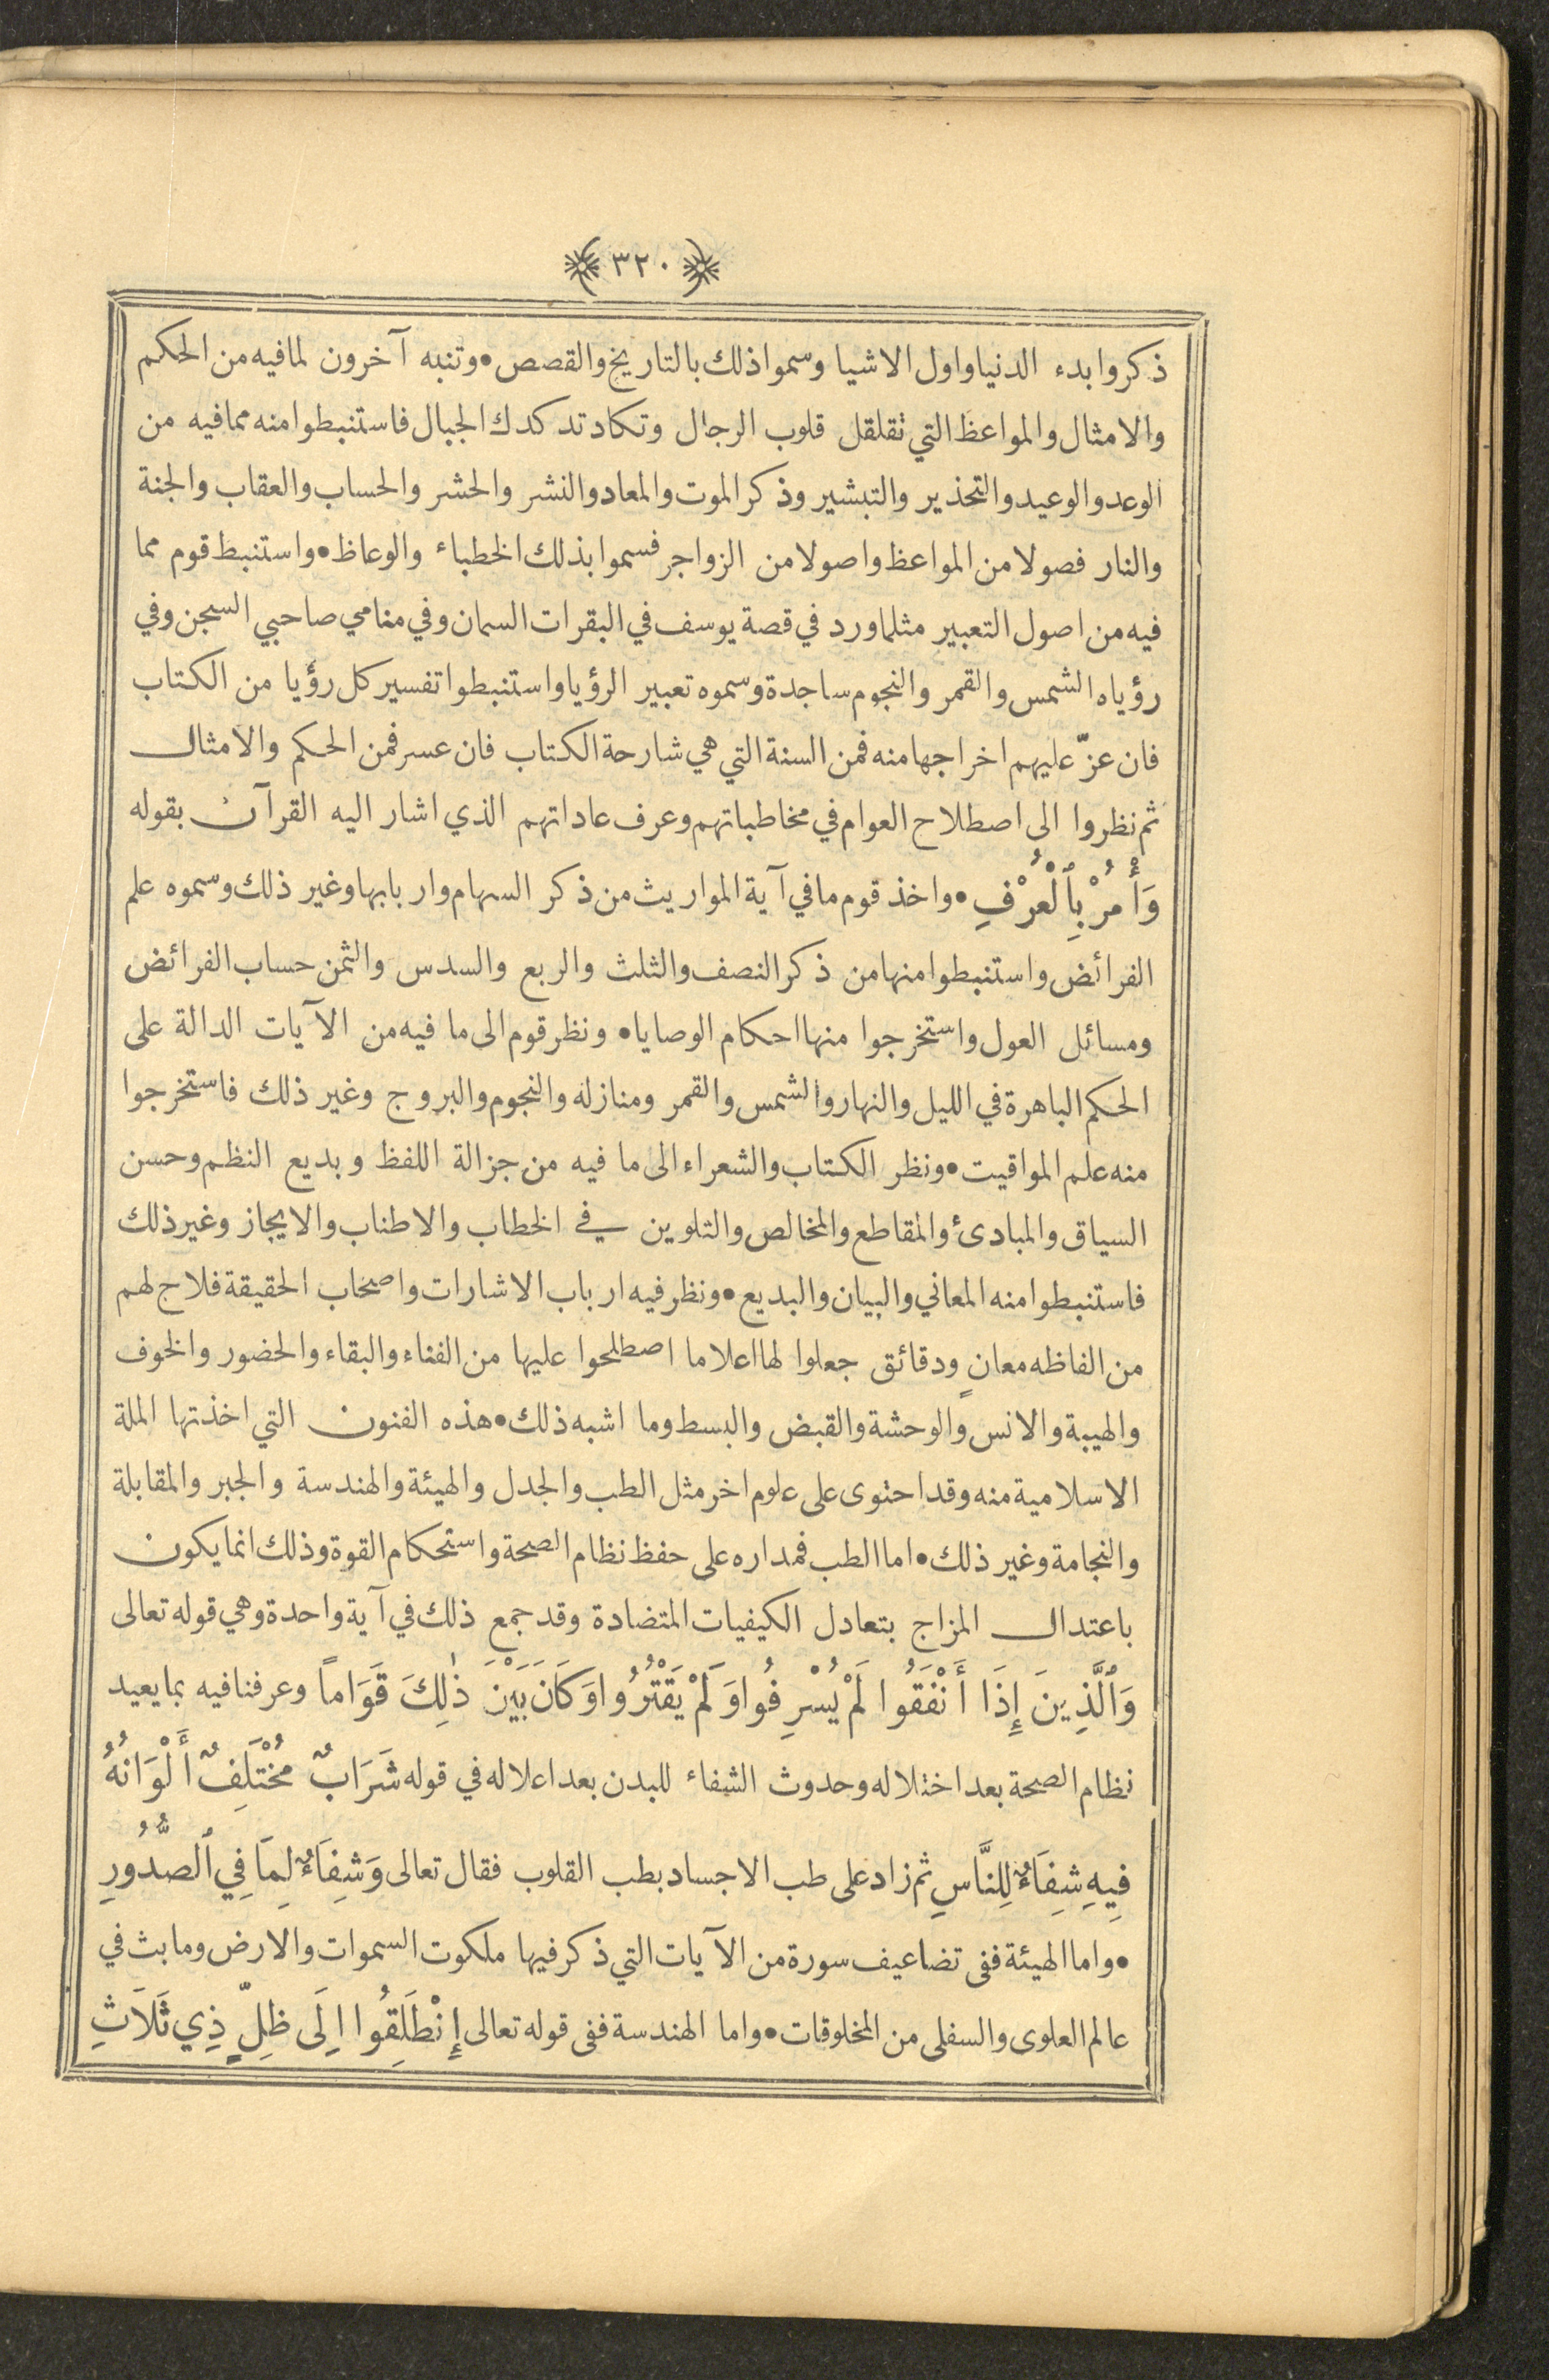 ﴿ ٣٢٠ ﴾
ذكروا بدء الدنيا واول الاشيا وسموا ذلك بالتاريخ والقصص • وتنبه آخرون لما فيه من الحكم
والامثال والمواعظ التي تقلقل قلوب الرجال وتكاد تدكدك الجبال فاستنبطوا منه مما فيه من
الوعد والوعيد والتحذير والتبشير وذكر الموت والمعاد والنشر والحشر والحساب والعقاب والجنة
والنار فصولا من المواعظ واصولا من الزواجر فسموا بذلك الخطباء والوعاظ • واستنبط قوم مما
فيه من اصول التعبير مثلما ورد في قصة يوسف في البقرات السمان وفي منامي صاحبي السجن وفي
رؤياه الشمس والقمر والنجوم ساجدة وسموه تعبير الرؤيا واستنبطوا تفسير كل رؤيا من الكتاب
فان عزّ عليهم اخراجها منه فمن السنة التي هي شارحة الكتاب فان عسر فمن الحكم والامثال
ثم نظروا الى اصطلاح العوام في مخاطباتهم وعرف عاداتهم الذي اشار اليه القرآن بقوله
وَأْمُرْ بِٱلْعُرْفِ • واخذ قوم ما في آية المواريث من ذكر السهام واربابها وغير ذلك وسموه علم
الفرائض واستنبطوا منها من ذكر النصف والثلث والربع والسدس والثمن حساب الفرائض
ومسائل العول واستخرجوا منها احكام الوصايا • ونظر قوم الى ما فيه من الآيات الدالة على
الحكم الباهرة في الليل والنهار والشمس والقمر ومنازله والنجوم والبروج وغير ذلك فاستخرجوا
منه علم المواقيت • ونظر الكتاب والشعراء الى ما فيه من جزالة اللفظ وبديع النظم وحسن
السياق والمبادئ والمقاطع والمخالص والتلوين في الخطاب والاطناب والايجاز وغير ذلك
فاستنبطوا منه المعاني والبيان والبديع • ونظر فيه ارباب الاشارات واصحاب الحقيقة فلاح لهم
من الفاظه معانٍ ودقائق جعلوا لها اعلاما اصطلحوا عليها من الفناء والبقاء والحضور والخوف
والهيبة والانس والوحشة والقبض والبسط وما اشبه ذلك • هذه الفنون التي اخذتها الملة
الاسلامية منه وقد احتوى على علوم اخر مثل الطب والجدل والهيئة والهندسة والجبر والمقابلة
والنجامة وغير ذلك • اما الطب فمداره على حفظ نظام الصحة واستحكام القوة وذلك انما يكون
باعتدال المزاج بتعادل الكيفيات المتضادة وقد جمع ذلك في آية واحدة وهي قوله تعالى
وَٱلَّذِينَ إِذَا أَنْفَقُوا لَمْ يُسْرِفُوا وَلَمْ يَقْتُرُوا وَكَانَ بَيْنَ ذٰلِكَ قَوَاماً وعرفنا فيه بما يعيد
نظام الصحة بعد اختلاله وحدوث الشفاء للبدن بعد اعلاله في قوله شَرَابٌ مُخْتَلِفٌ أَلْوَانُهُ
فِيهِ شِفَاءٌ لِلنَّاسِ ثم زاد على طب الاجساد بطب القلوب فقال تعالى وَشِفَاءٌ لِمَا فِي ٱلصُّدُورِ
• واما الهيئة ففى تضاعيف سورة من الآيات التي ذكر فيها ملكوت السموات والارض وما بث في
عالم العلوى والسفلى من المخلوقات • واما الهندسة ففى قوله تعالى إِنْطَلِقُوا إِلَى ظِلٍّ ذِي ثَلَاثِ